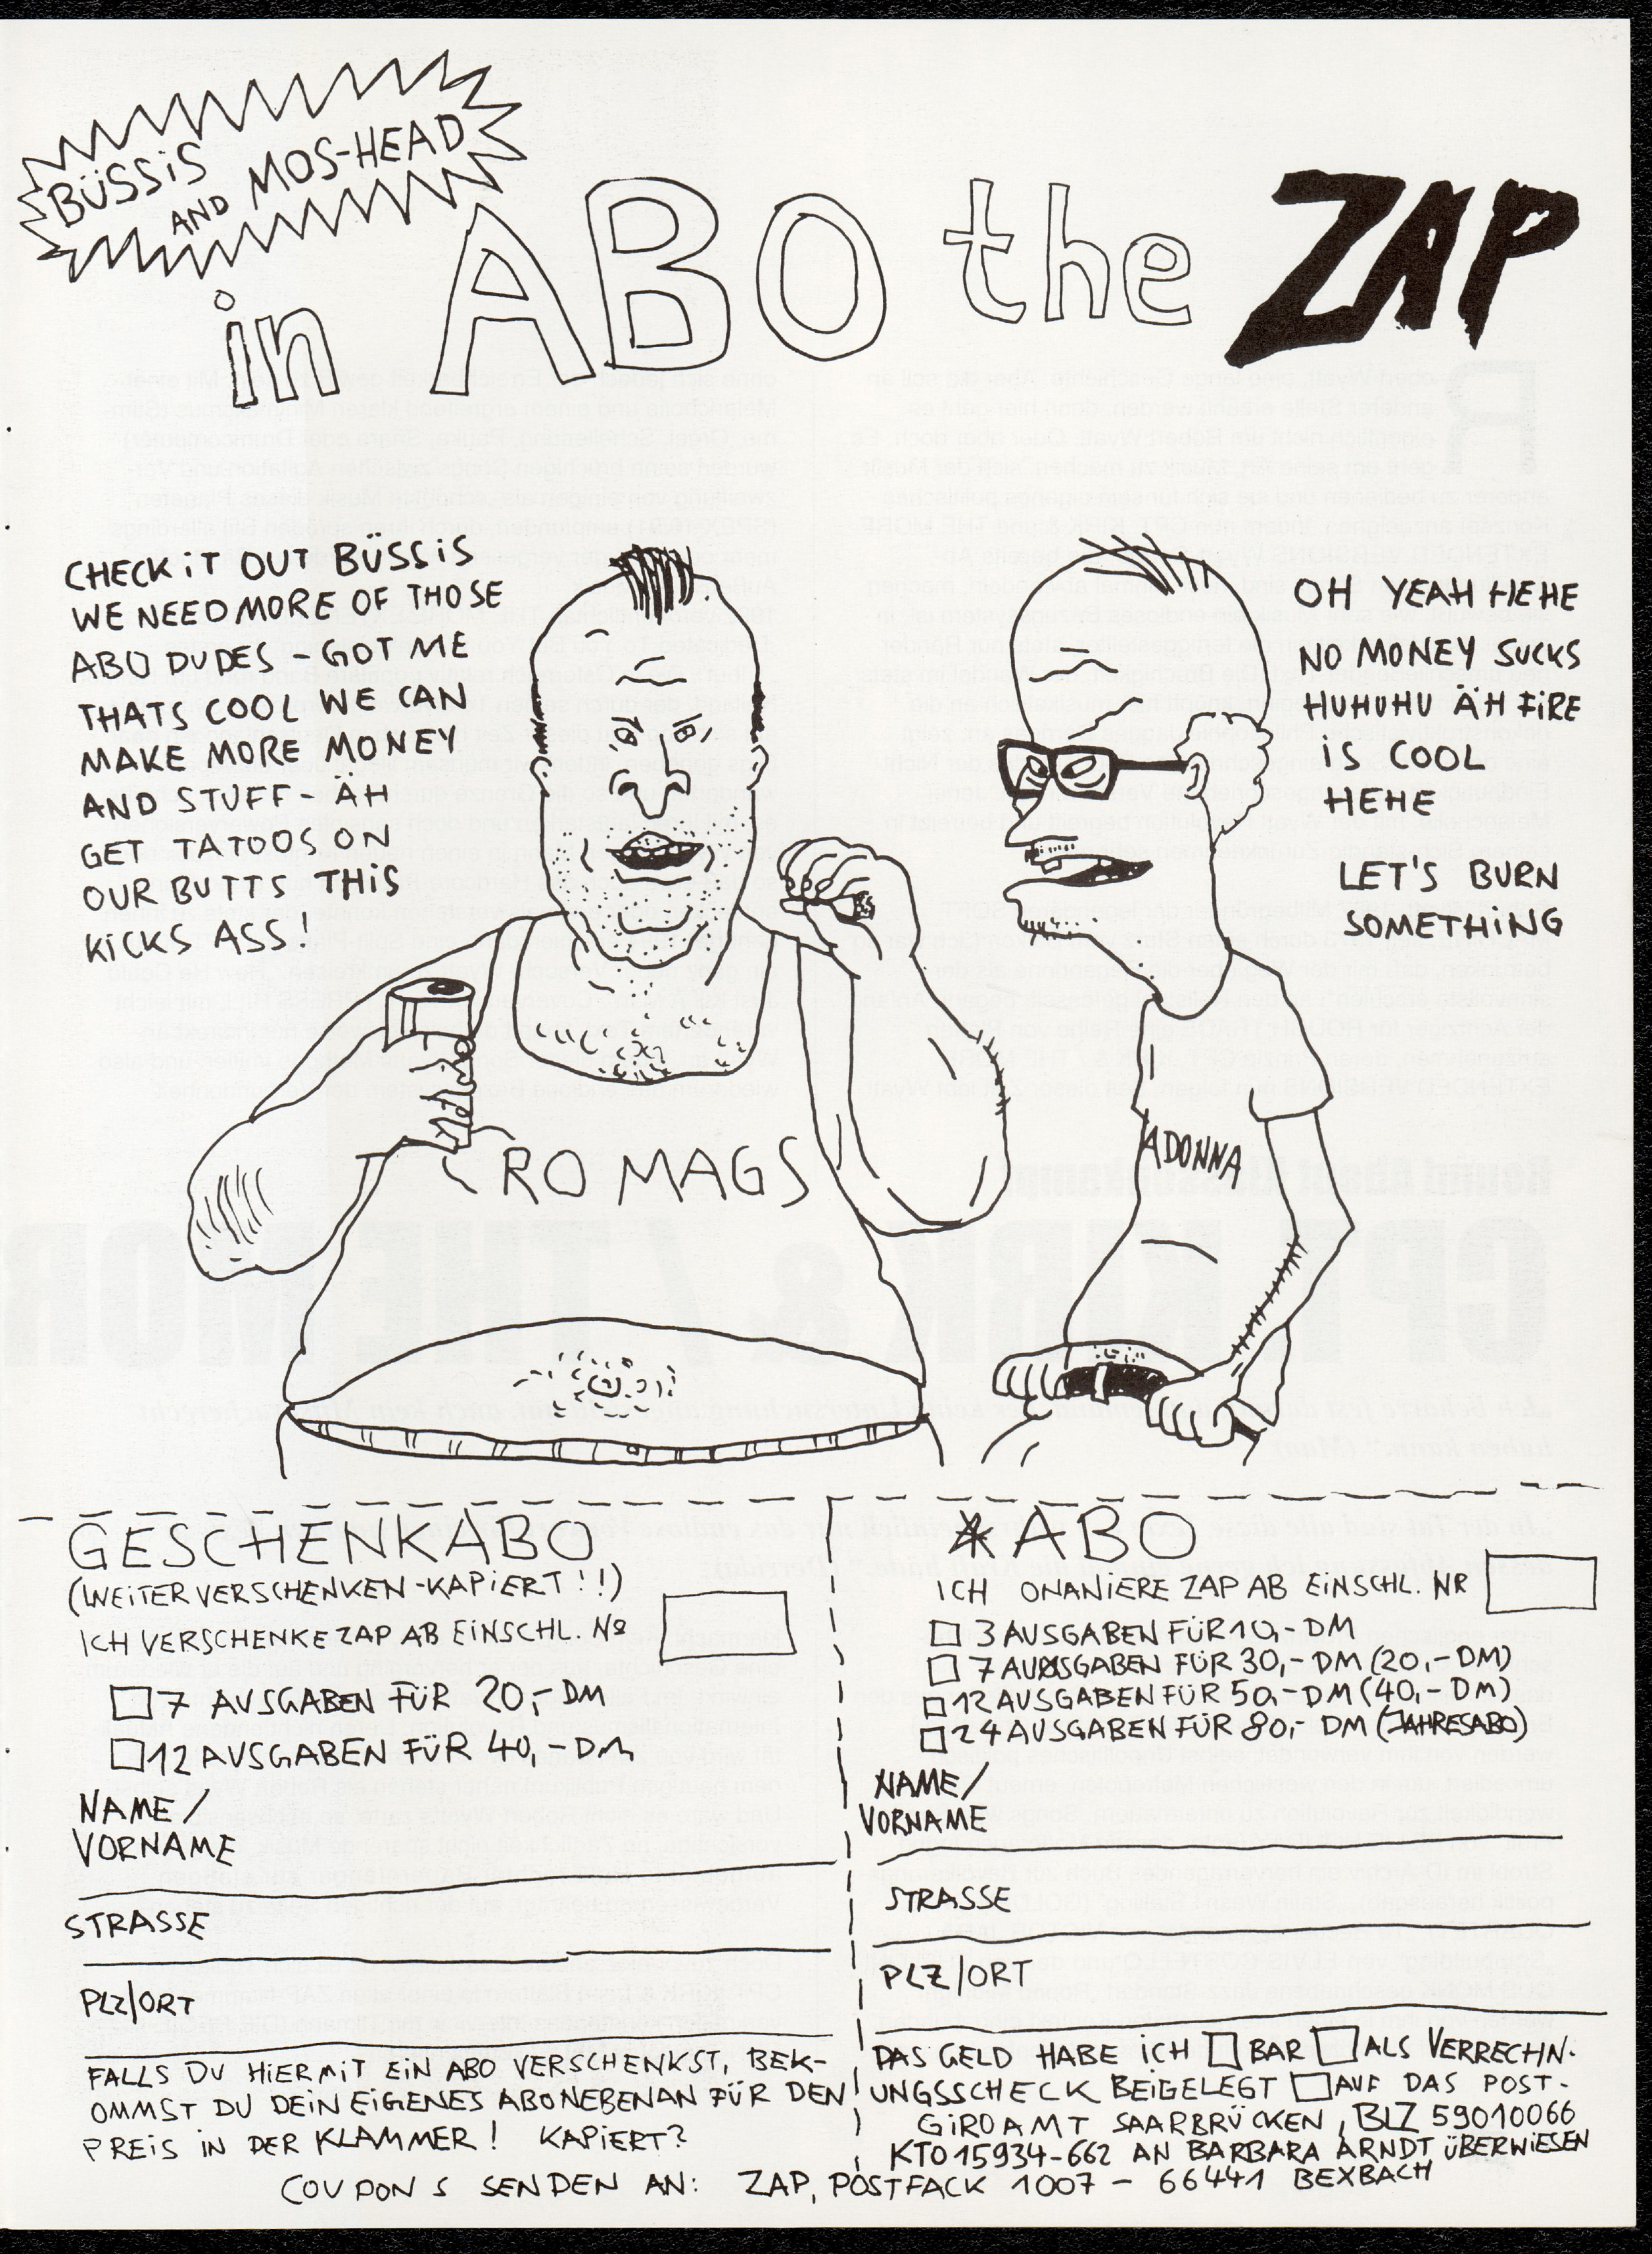 BÜSSIS
AND MOS-HEAD
in ABO the ZAP
CHECK IT OUT BÜSSIS
WE NEED MORE OF THOSE
ABO DUDES - GOT ME
THATS COOL WE CAN
MAKE MORE MONEY
AND STUFF - ÄH
GET TATOOS ON
OUR BUTTS THIS
KICKS ASS!
OH YEAH HEHE
NO MONEY SUCKS
HUHUHU ÄH FIRE
IS COOL
HEHE
LET'S BURN
SOMETHING
CRO MAGS
ADONNA
GESCHENKABO
(WEITER VERSCHENKEN-KAPIERT!!)
ICH VERSCHENKE ZAP AB EINSCHL. No
7 AUSGABEN FÜR 20,- DM
12 AUSGABEN FÜR 40,- DM
NAME/
VORNAME
STRASSE
PLZ/ORT
FALLS DU HIERMIT EIN ABO VERSCHENKST, BEK-
OMMST DU DEIN EIGENES ABO NEBENAN FÜR DEN
PREIS IN DER KLAMMER! KAPIERT?
* ABO
ICH ONANIERE ZAP AB EINSCHL. NR
3 AUSGABEN FÜR 10,- DM
7 AUSGABEN FÜR 30,- DM (20,- DM)
12 AUSGABEN FÜR 50,- DM (40,- DM)
24 AUSGABEN FÜR 80,- DM (JAHRESABO)
NAME/
VORNAME
STRASSE
PLZ/ORT
DAS GELD HABE ICH BAR ALS VERRECHN-
UNGSSCHECK BEIGELEGT AUF DAS POST-
GIROAMT SAARBRÜCKEN, BLZ 59010066
KTO 15934-662 AN BARBARA ARNDT ÜBERWIESEN
COUPONS SENDEN AN: ZAP, POSTFACK 1007 - 66441 BEXBACH